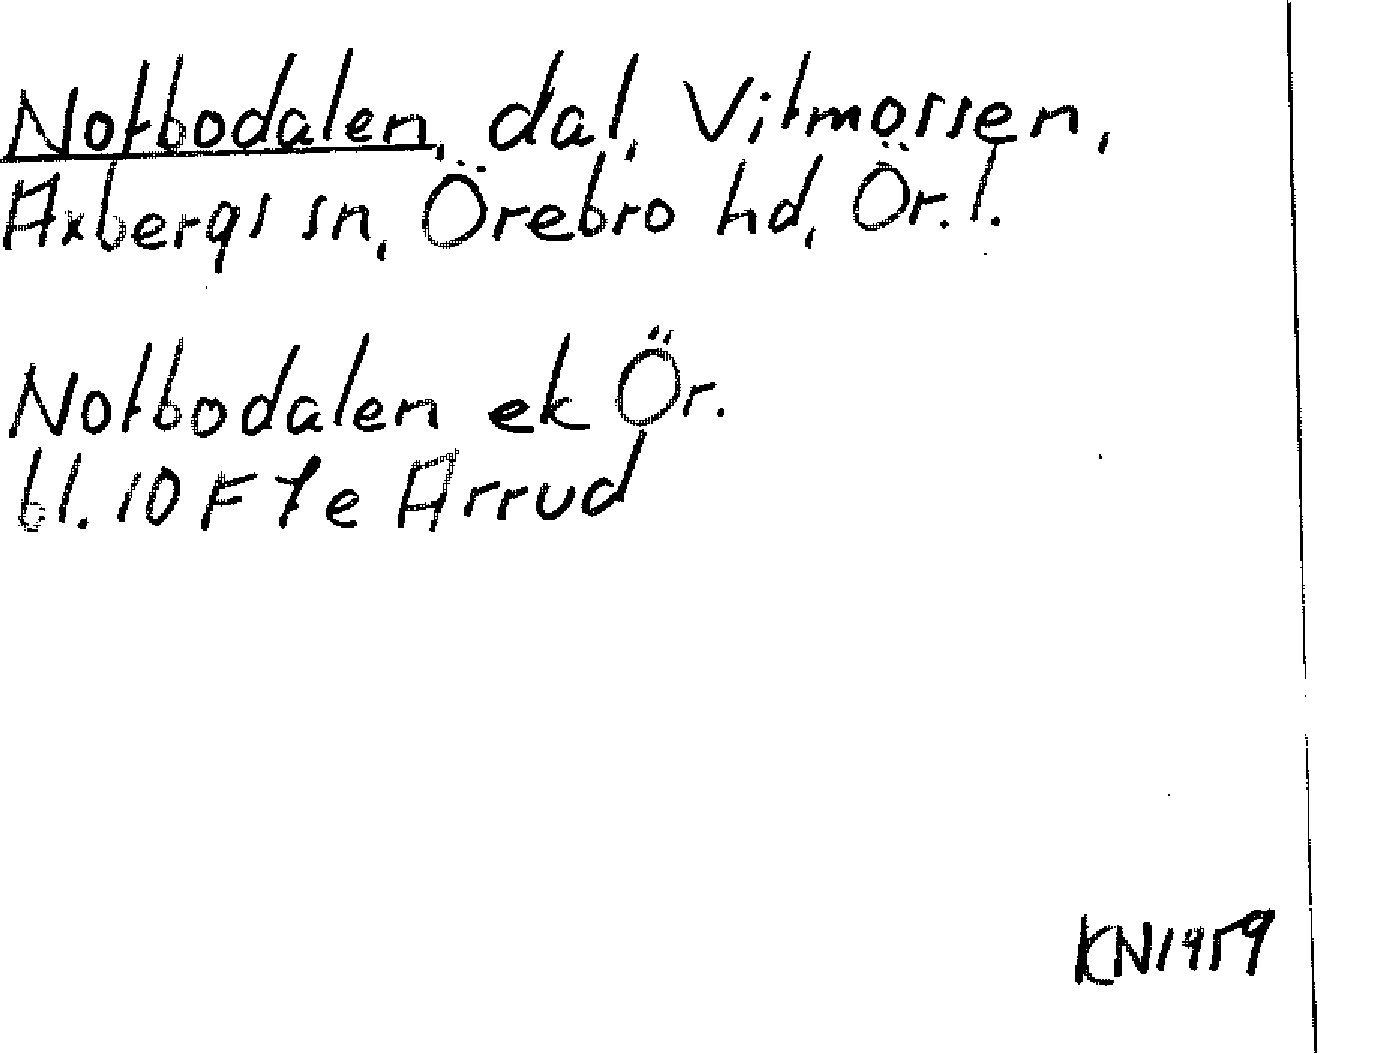 Notbodalen, dal, Vitmossen,
Axbergs sn, Örebro hd, Ör. l.
Notbodalen ek Ör.
bl. 10 F 7 e Arrud
KN 1959